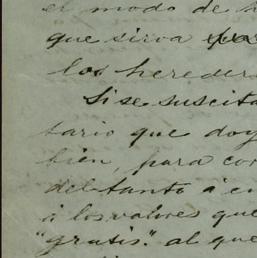 el modo de
que sirva
los hereder
Si se suscita
tario que doy
bien, para con
del tanto á
á los valores que
"gratis". al que